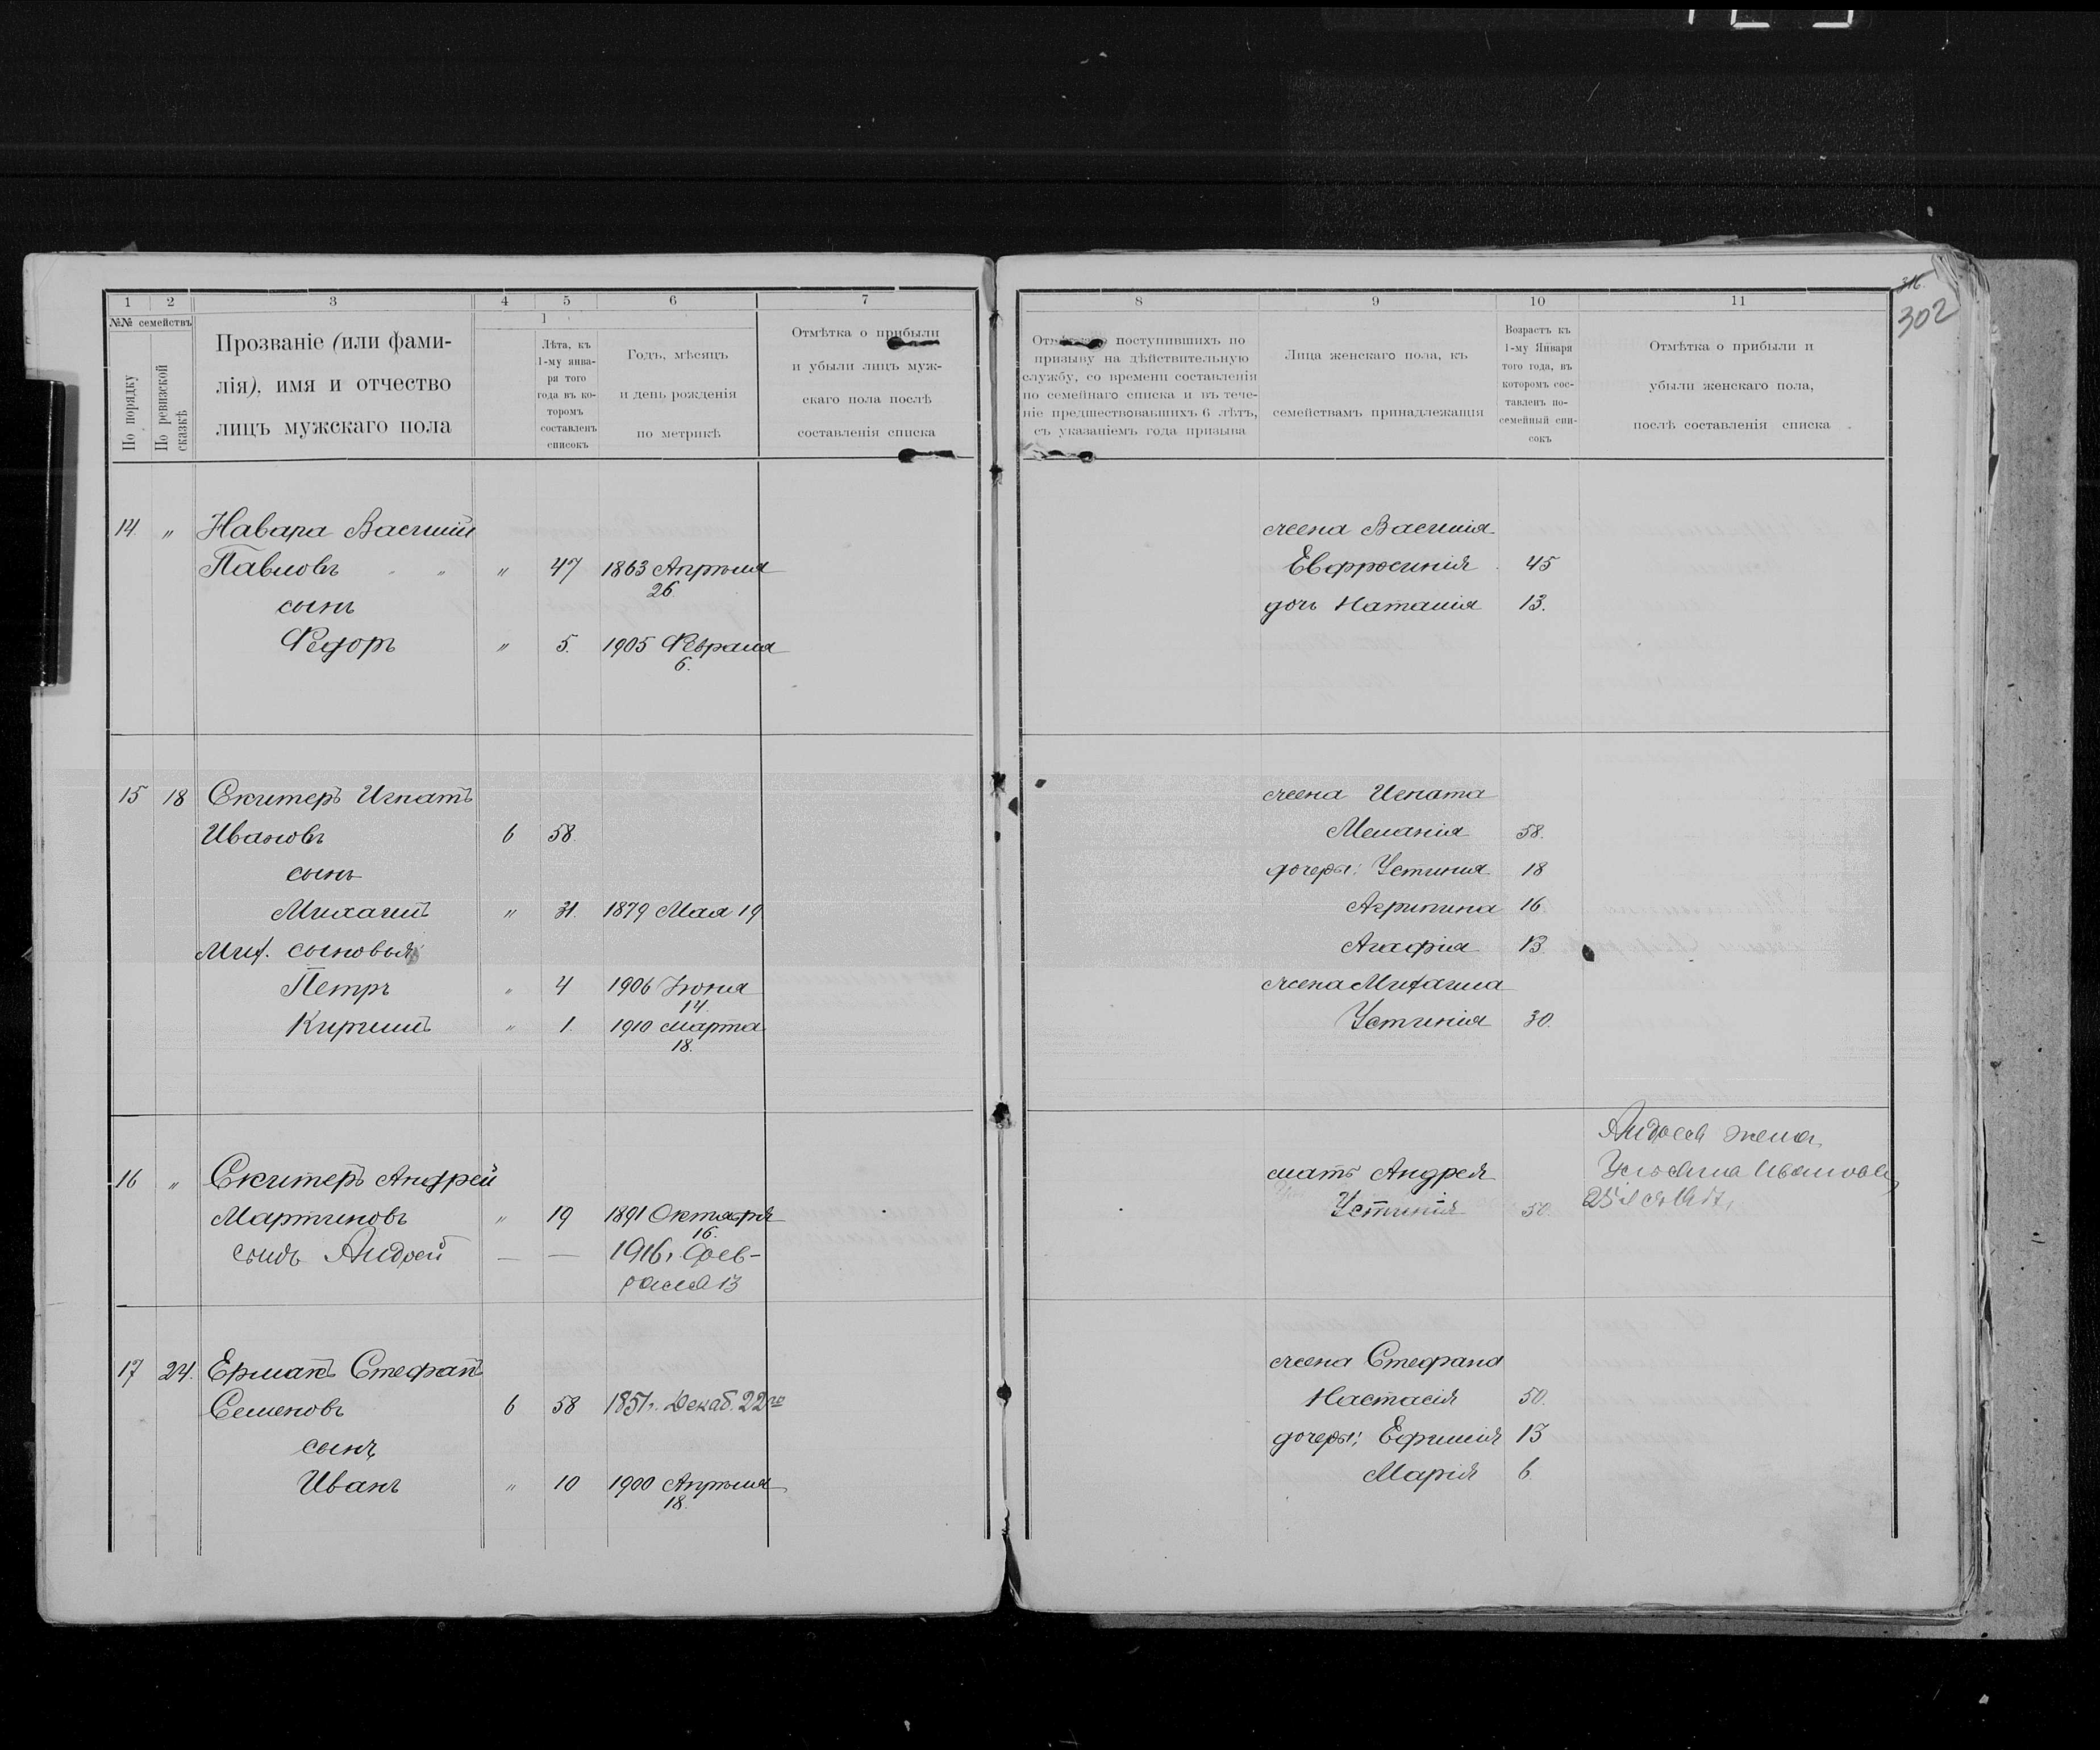 302
1 2 3 4 5 6 7
№№ семействъ
По порядку
По ревизской сказкѣ
Прозваніе (или фами-
лія), имя и отчество
лицъ мужскаго пола
1
Лѣта, къ
1-му янва-
ря того
года въ ко-
торомъ
составленъ
списокъ
Годъ, мѣсяцъ
и день рожденія
по метрикѣ
Отмѣтка о прибыли
и убыли лицъ муж-
скаго пола послѣ
составленія списка
14. " Навара Василій
Павловъ " 47 1863 Апрѣля
26.
сынъ
Федоръ " 5. 1905 Февраля
6.
15 18 Скитеръ Игнатъ
Ивановъ 6 58.
сынъ
Михаилъ " 31. 1879 Мая 19
Мих. сыновья
Петръ " 4 1906 Іюня
14.
Кириллъ " 1. 1910 Марта
18.
16 " Скитеръ Андрей
Мартиновъ " 19 1891 Октября
16.
сынъ Андрей — — 1916 г. Фев-
раля 13
17 24. Ермакъ Стефанъ
Семеновъ 6 58 1851 г. Декаб. 22го
сынъ
Иванъ " 10 1900 Апрѣля
18.
8 9 10 11
поступившихъ по
призыву на дѣйствительную
службу, со времени составленія
по семейнаго списка и въ тече-
ніе предшествовавшихъ 6 лѣтъ,
съ указаніемъ года призыва
Лица женскаго пола, къ
семействамъ принадлежащія
Возрастъ къ
1-му Января
того года, въ
которомъ сос-
тавленъ по-
семейный спи-
сокъ
Отмѣтка о прибыли и
убыли женскаго пола,
послѣ составленія списка
жена Василія
Евфросинія 45
дочь Наталія 13.
жена Игната
Меланія 58.
дочеры: Устинія 18
Агрипина 16
Агафія 13.
жена Михаила
Устинія 30.
мать Андрея
Устинія 50.
Андрея жена
Ульяна Иванова
25
жена Стефана
Настасія 50.
дочеры: Ефимія 13
Марія 6.